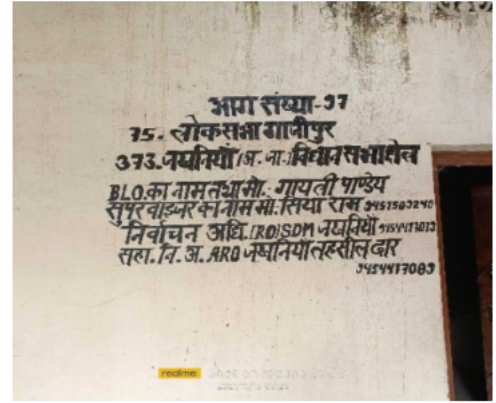 भाग संख्या-97
75. लोकसभा गाजीपुर
373. जखनियाँ (अ. जा.) विधान सभा क्षेत्र
BLO. का नाम तथा मो. गायत्री पाण्डेय
सुपरवाइजर का नाम मो. सिया राम
निर्वाचन अधि. (RO) SDM जखनियाँ
सहा. नि. अ. ARO जखनियाँ तहसीलदार
9454417089
realme